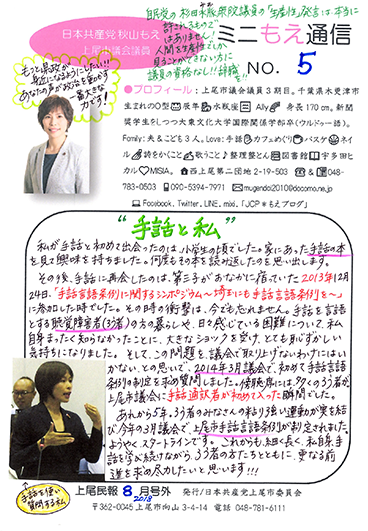 自民党の杉田水脈衆院議員の「生産性」発言は本当に
許されるもので
はありません!
人間を生産性でしか
見ることができない方に
議員の資格なし!!辞職を!!
日本共産党 秋山もえ
上尾市議会議員
ミニもえ通信
NO. 5
もっと県政が
身近になるようにしたい!!!
あなたの声がお政治を動かす
一番大きな
力です!
●プロフィール:上尾市議会議員3期目。千葉県木更津市
生まれのO型 辰年 水瓶座 Ally 身長170cm。新聞
奨学生をしつつ大東文化大学国際関係学部卒(ウルドゥー語)。
Family:夫&こども3人。Love:手話 カフェめぐり バスケ ネイ
ル 詩をかくこと 歌うこと 整理整とん 図書館 宇多田ヒ
カル MISIA。 西上尾第二団地2-19-503 & 048-
783-0503 090-5394-7971 mugendai2010@docomo.ne.jp
Facebook、Twitter、LINE、mixi、「JCP*もえブログ」
"手話と私"
私が手話と初めて出会ったのは、小学生の頃でした。家にあった手話の本
を見て興味を持ちました。何度もその本を読み返したのを思い出します。
その後、手話に再会したのは、第三子がおなかに宿っていた2013年12月
24日、「手話言語条例に関するシンポジウム〜埼玉にも手話言語条例を〜」
に参加した時でした。その時の衝撃は、今でも忘れません。手話を言語
とする聴覚障害者(ろう者)の方の暮らしや、日々感じている困難について、私
自身まったく知らなかったことに、大きなショックを受け、とても恥ずかしい
気持ちになりました。そして、この問題を、議会で取り上げないわけにはい
かない、との思いで、2014年3月議会で、初めて手話言語
条例の制定を求め質問しました。傍聴席には、多くのろう者が
上尾市議会に手話通訳者が初めて入った瞬間でした。
あれから5年。ろう者のみなさんの粘り強い運動が実を結
び今年の3月議会で、上尾市手話言語条例が制定されました。
ようやくスタートラインです。これからも、細く長く、私自身手
話を学び続けながら、ろう者の方たちとともに、更なる前
進を求め尽力したいと思います!!!
手話を使い
質問する私
上尾民報 8月号外 発行/日本共産党上尾市委員会
2018
〒362-0045 上尾市向山 3-4-14 電話 048-781-6111